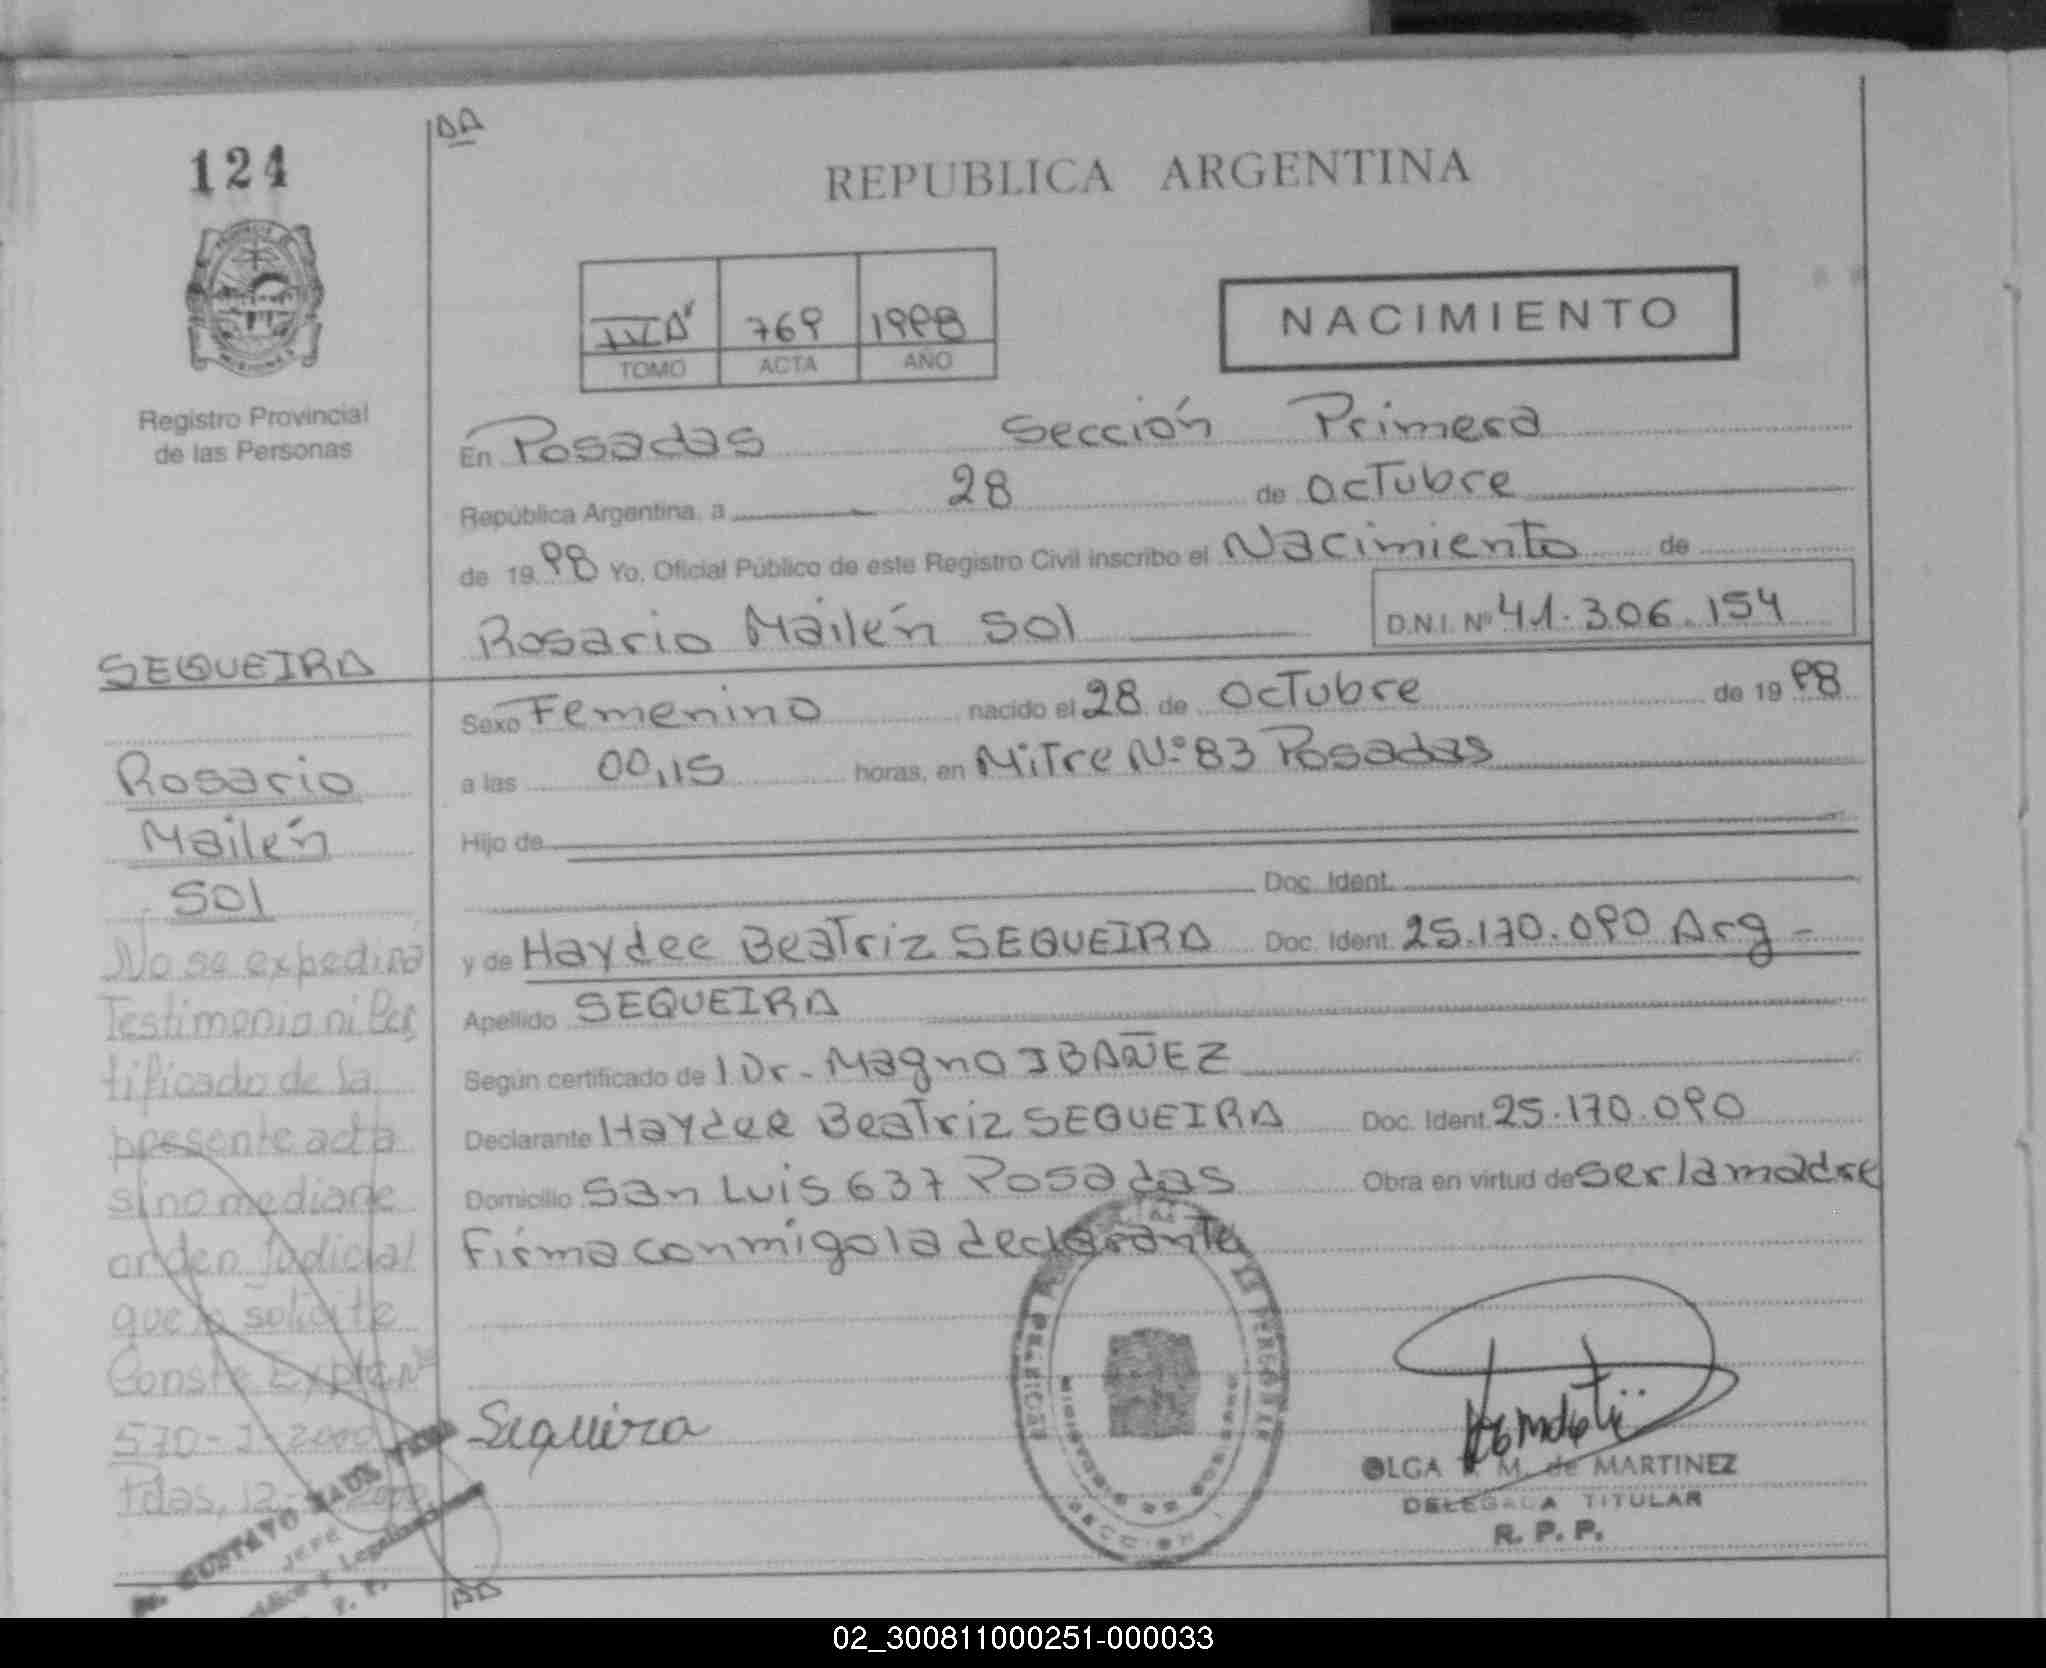 124
DA
REPUBLICA ARGENTINA
769 1998
TOMO ACTA AÑO
NACIMIENTO
Registro Provincial
de las Personas
En Posadas Sección Primera
República Argentina, a 28 de Octubre
de 1998 Yo, Oficial Público de este Registro Civil inscribo el Nacimiento de
Rosario Mailén Sol D.N.I. Nº 41.306.154
SEQUEIRA
Sexo Femenino nacido el 28 de Octubre de 1998
Rosario
a las 00,15 horas, en Mitre Nº 83 Posadas
Mailén
Hijo de
Sol
Doc. Ident.
y de Haydee Beatriz SEQUEIRA Doc. Ident. 25.170.090 Arg -
Apellido SEQUEIRA
Según certificado de l Dr. Magno IBAÑEZ
Declarante Haydee Beatriz SEQUEIRA Doc. Ident. 25.170.090
Domicilio San Luis 637 Posadas Obra en virtud de ser la madre
Firma conmigo la declarante
No se expedirá
Testimonio ni Cer
tificado de la
presente acta
sino mediane
orden Judicial
que lo solicite
Conste Expte Nº
570-J-2000
Pdas, 12
Sequeira
GUSTAVO
JEFE
OLGA M. de MARTINEZ
DELEGADA TITULAR
R. P. P.
SECCION 1
02_300811000251-000033